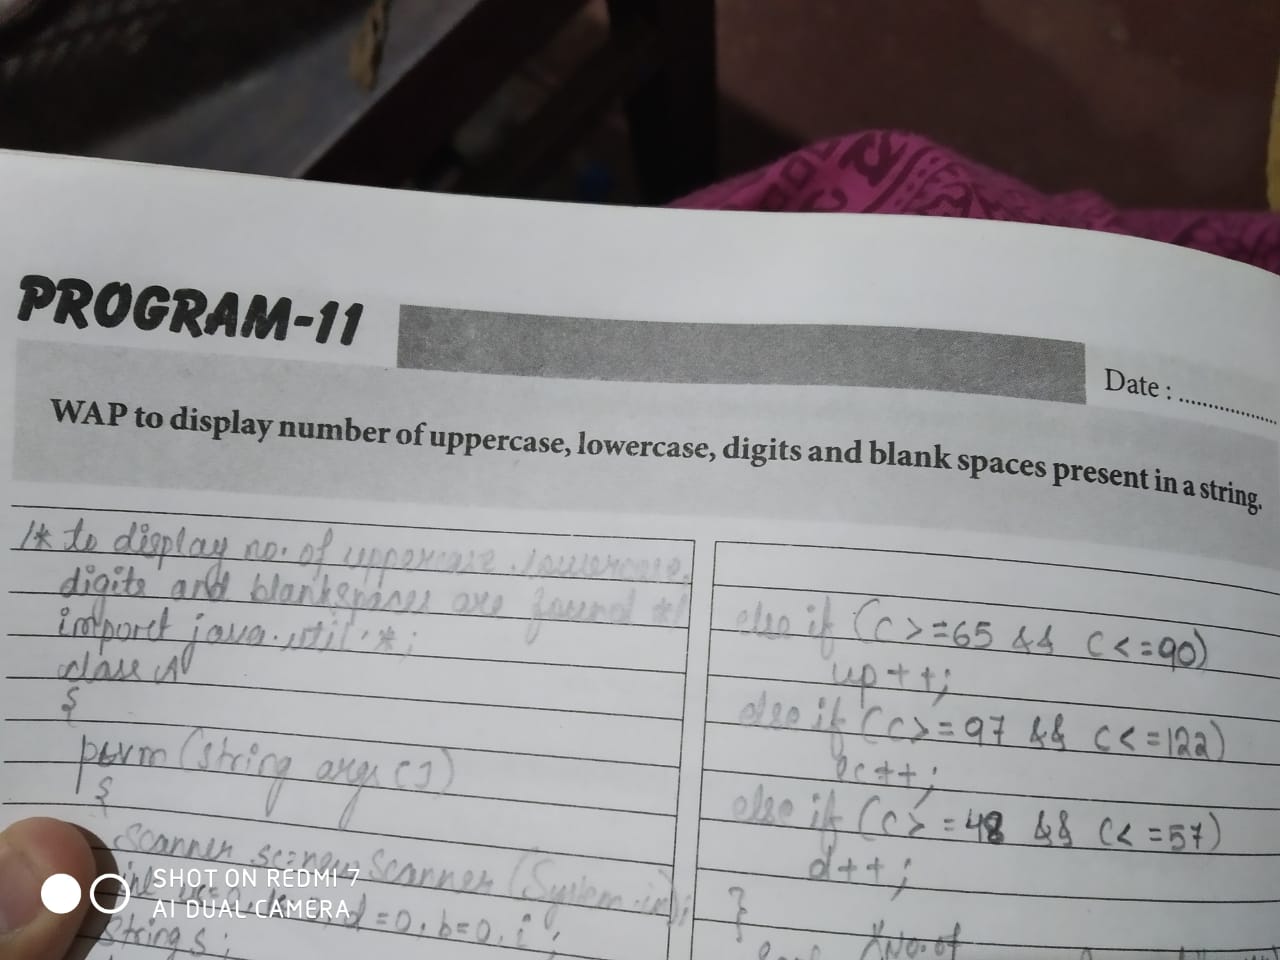 PROGRAM-11
Date : ..................
WAP to display number of uppercase, lowercase, digits and blank spaces present in a string.
/* to display no. of uppercase, lowercase,
digits and blankspaces are found */
import java.util.*;
class A
{
psvm (string args [])
{
Scanner sc=new Scanner (System.in);
d=0, b=0, i;
String s;
else if (c>=65 && c<=90)
up++;
else if (c>=97 && c<=122)
lc++;
else if (c>=48 && c<=57)
d++;
}
No. of
SHOT ON REDMI 7
AI DUAL CAMERA